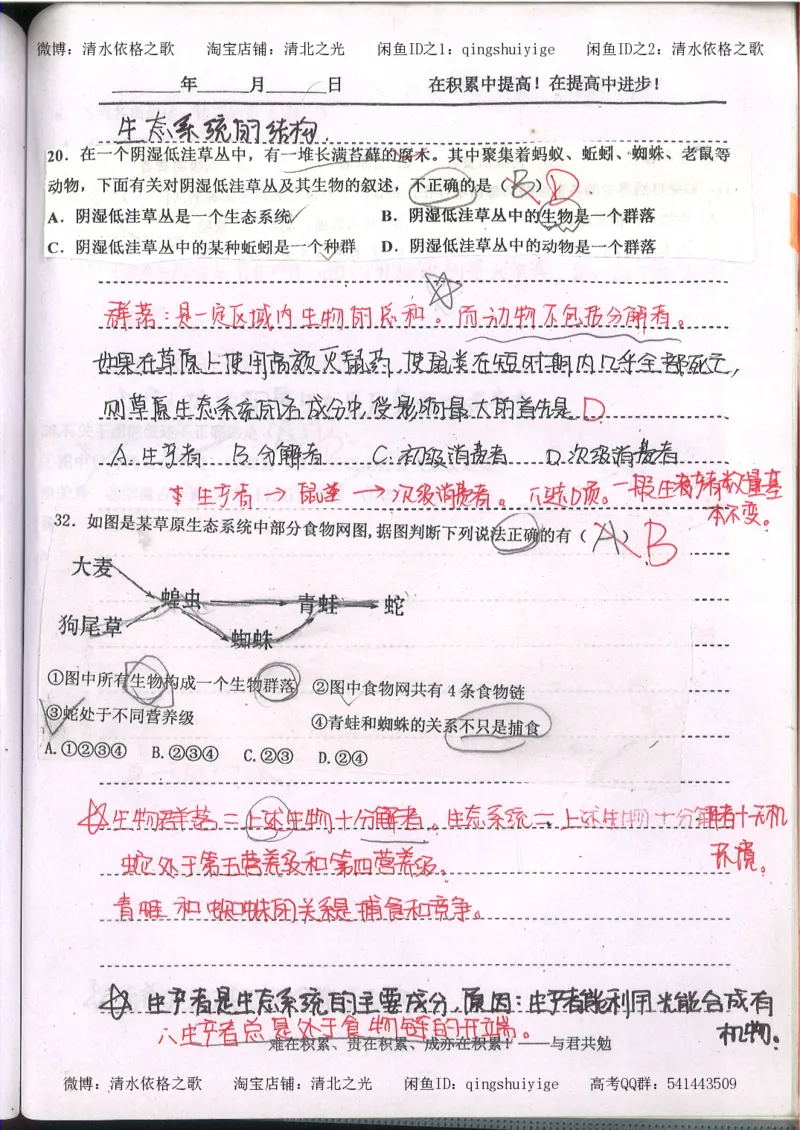 微博：清水依格之歌 淘宝店铺：清北之光 闲鱼ID之1：qingshuiyige 闲鱼ID之2：清水依格之歌
年 月 日 在积累中提高！在提高中进步！
生态系统的结构.
20．在一个阴湿低洼草丛中，有一堆长满苔藓的腐木。其中聚集着蚂蚁、蚯蚓、蜘蛛、老鼠等
动物，下面有关对阴湿低洼草丛及其生物的叙述，不正确的是（B）D.
A．阴湿低洼草丛是一个生态系统 B．阴湿低洼草丛中的生物是一个群落
C．阴湿低洼草丛中的某种蚯蚓是一个种群 D．阴湿低洼草丛中的动物是一个群落
群落：是一定区域内生物的总和。而动物不包括分解者。
如果在草原上使用高效灭鼠药，使鼠类在短时期内几乎全部死亡，
则草原生态系统的各成分中，受影响最大的首先是 D
A.生产者 B.分解者 C.初级消费者 D.次级消费者
生产者→鼠类→次级消费者。 一般生产者数量基
本不变。
32．如图是某草原生态系统中部分食物网图,据图判断下列说法正确的有（A）B
大麦
蝗虫 青蛙 蛇
狗尾草
蜘蛛
①图中所有生物构成一个生物群落 ②图中食物网共有 4 条食物链
③蛇处于不同营养级 ④青蛙和蜘蛛的关系不只是捕食
A.①②③④ B.②③④ C.②③ D.②④
生物群落=上述生物+分解者。生态系统=上述生物+分解者+无机
环境。
蛇处于第五营养级和第四营养级。
青蛙和蜘蛛的关系是捕食和竞争。
生产者是生态系统的主要成分.原因：生产者能利用光能合成有
机物。
生产者总是处于食物链的开端。
难在积累、贵在积累、成亦在积累！——与君共勉
微博：清水依格之歌 淘宝店铺：清北之光 闲鱼ID：qingshuiyige 高考QQ群：541443509